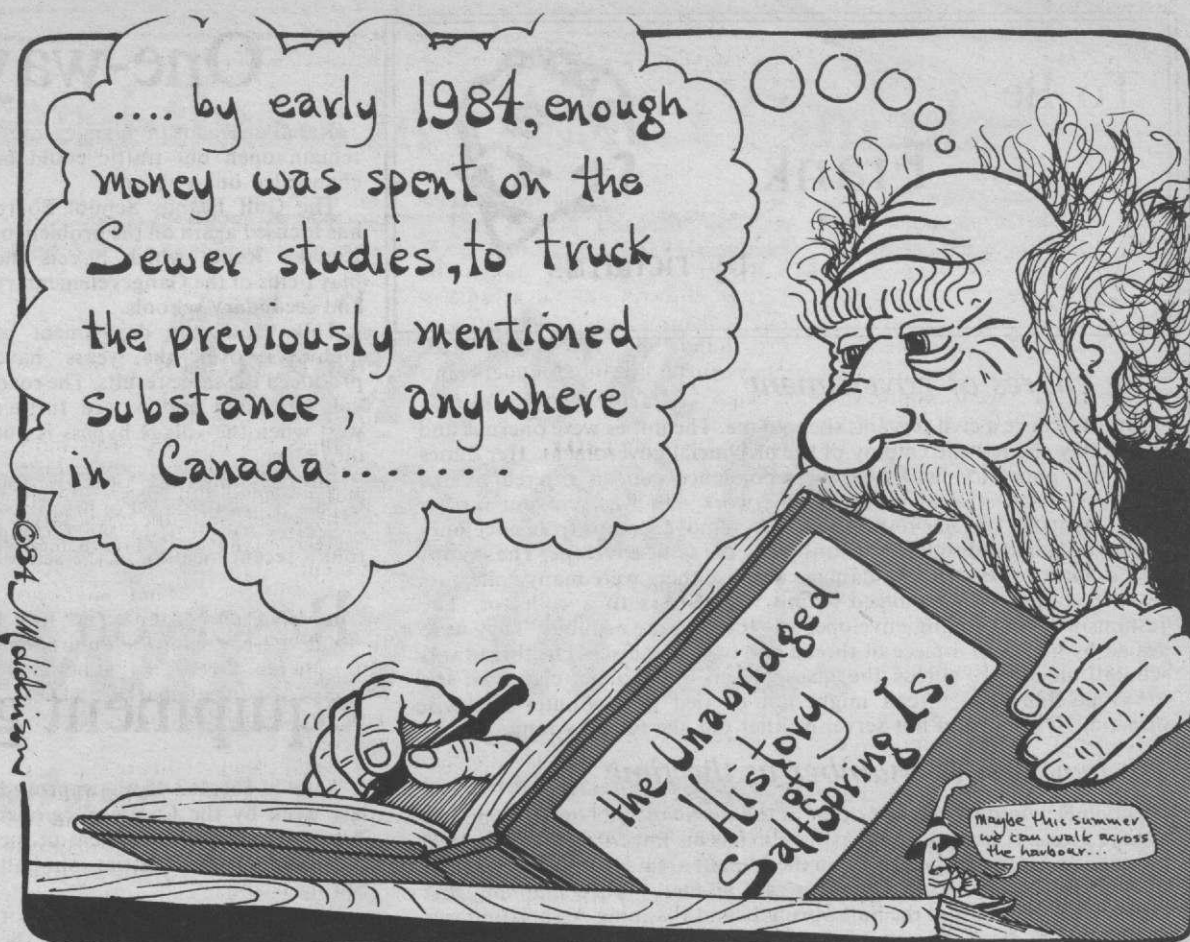 .... by early 1984, enough
money was spent on the
Sewer studies, to truck
the previously mentioned
substance, anywhere
in Canada........
the Unabridged
History
of
SaltSpring Is.
Maybe this summer
we can walk across
the harbour...
One-way
equipment